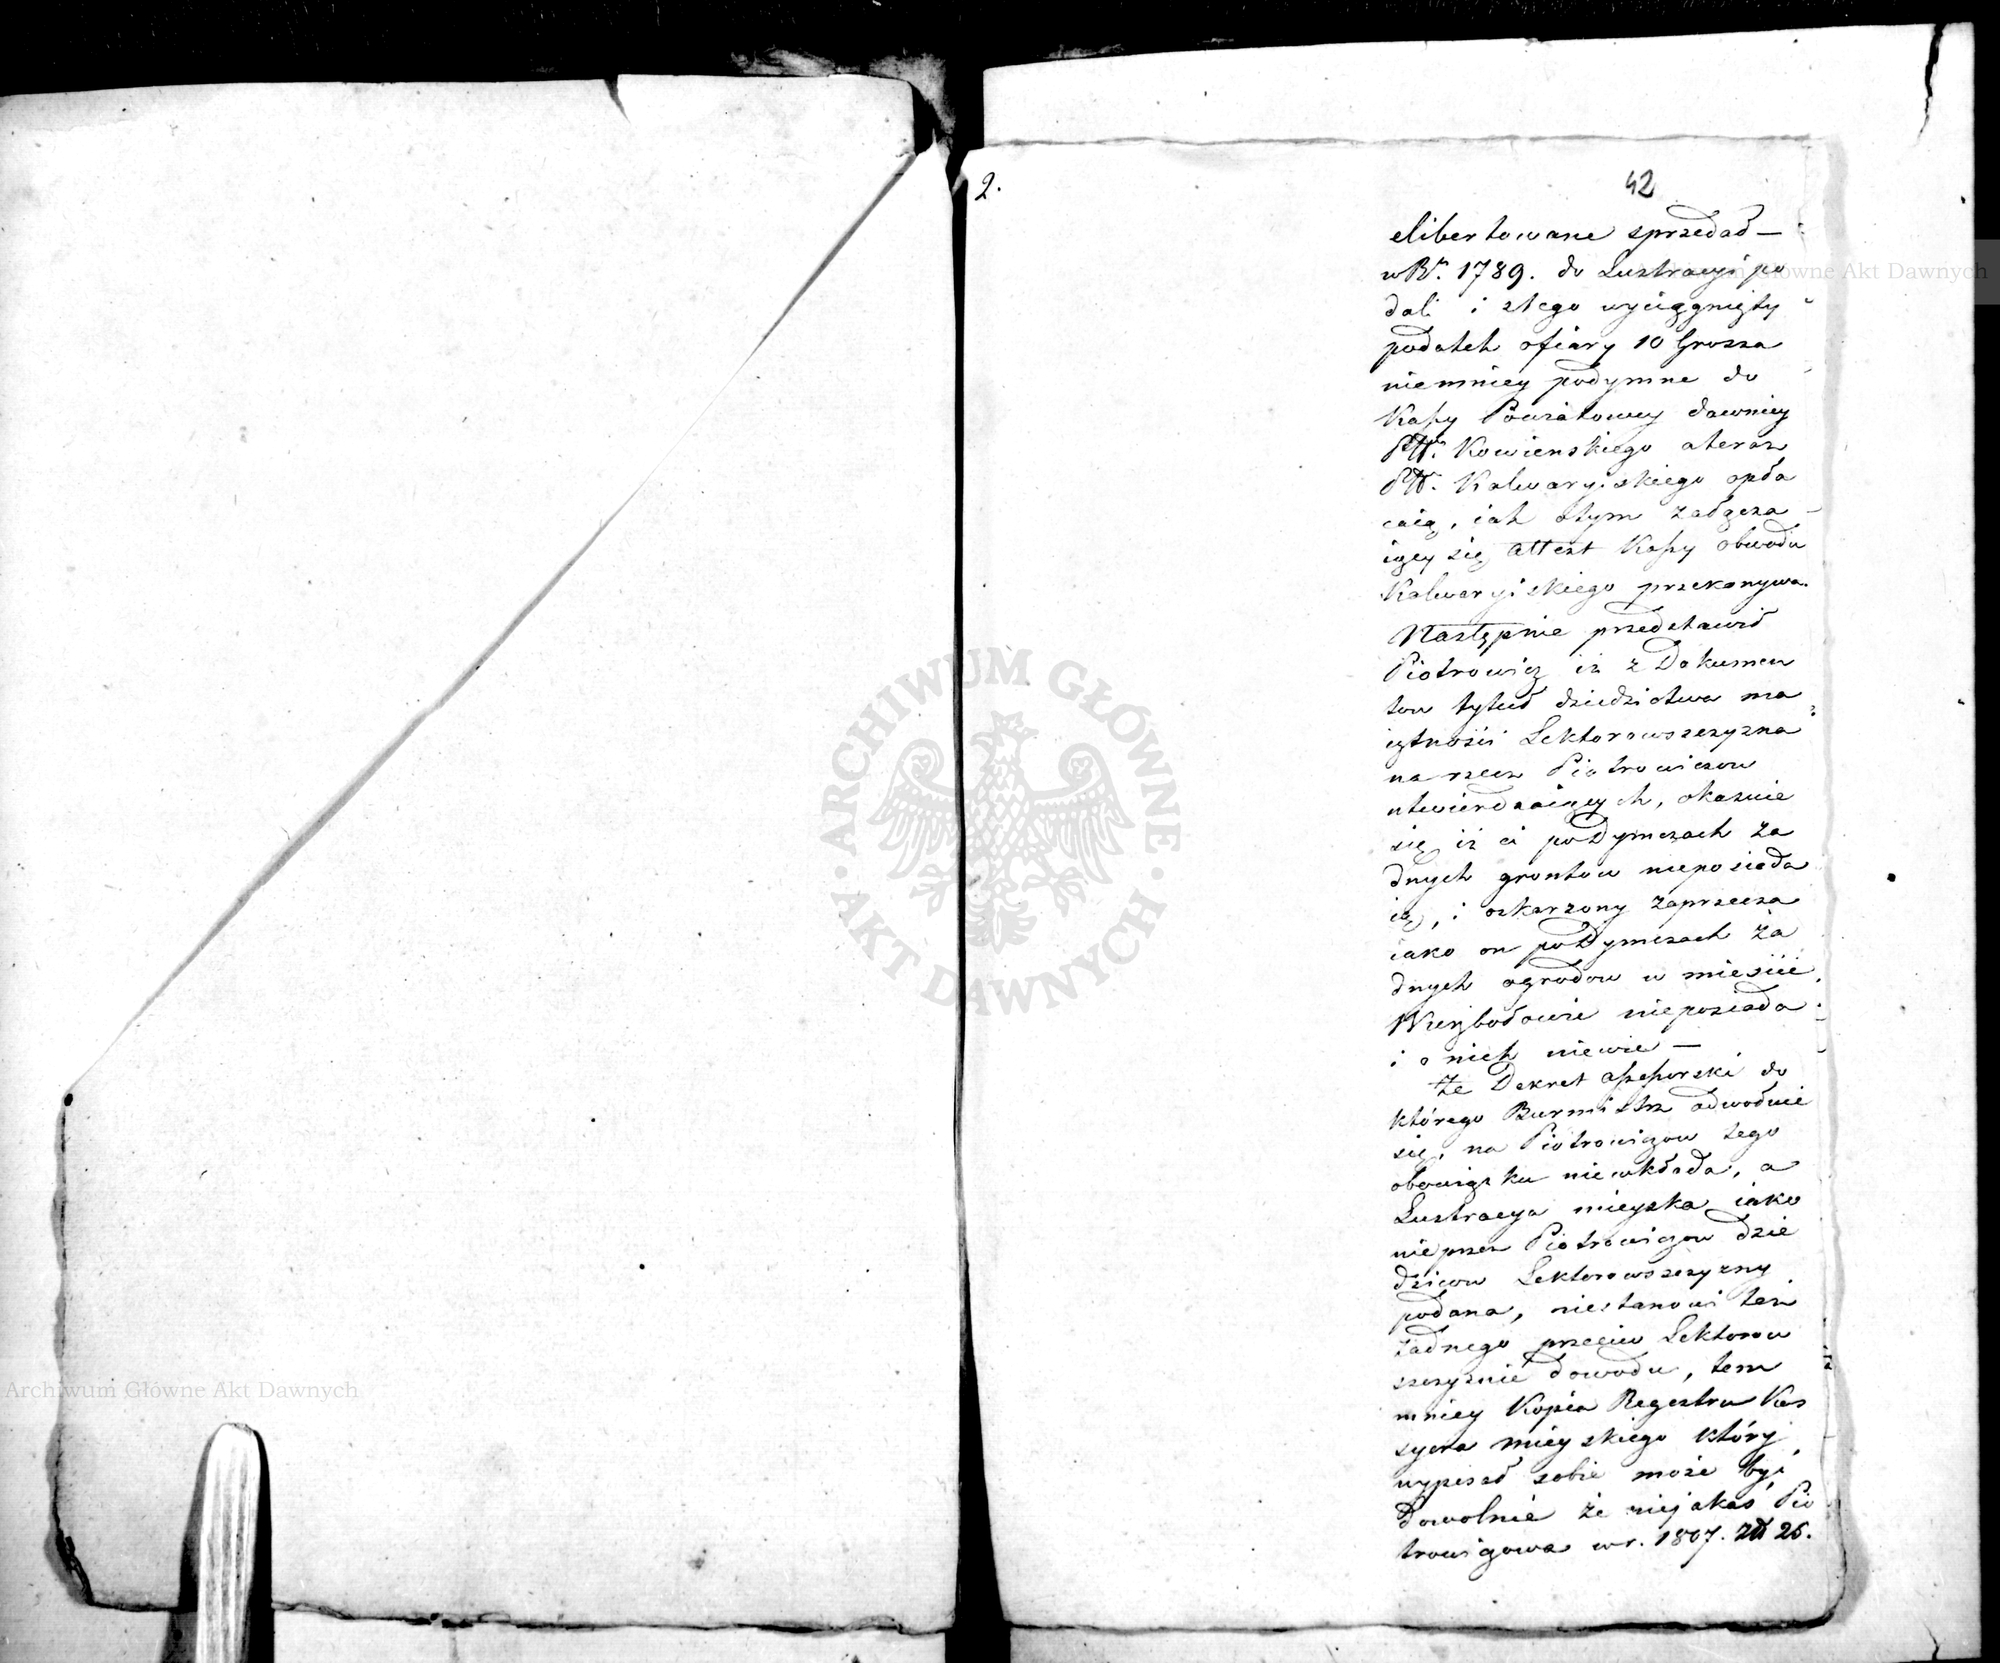 2.
42
elibertowane sprzedał —
w Rr. 1789. do Lustracyi po
dali i z tego wyciągnięty
podatek ofiary 10 Grosza
niemniey podymne do
Kassy Powiatowey dawniey
Ptt. Kowienskiego a teraz
Ptt. Kalwaryiskiego opła
caią, iak o tym załącza
iący się attest Kassy obwodu
Kalwaryiskiego przekonywa.
Następnie przedstawił
Piotrowicz iż z Dokumen
tow tytuł dziedzictwa ma
iętności Lektorowszczyzna
na rzecz Piotrowiczow
utwierdzaiących, okazuie
się iż ci po Dymczach ża
dnych gruntow nieposiada
ią, i oskarzony zaprzecza
iako on po Dymczach ża
dnych ogrodow w mieście
Wierzbołowie nieposiada
i o nich niewie —
Że Dekret assessorski do
którego Burmistrz odwołuie
się, na Piotrowiczow tego
obowiązku niewkłada, a
Lustracya mieyska iako
nieprzez Piotrowiczow dzie
dzicow Lektorowszczyzny
podana, niestanowi też
żadnego przeciw Lektorow
szczyznie dowodu, tem
mniey Kopia Regestru Kas
syera mieyskiego który
wypisał sobie może być
dowolnie że niejakaś Pio
trowiczowa w r. 1807. zł 26.
Archiwum Główne Akt Dawnych
Archiwum Główne Akt Dawnych
ARCHIWUM GŁÓWNE · AKT DAWNYCH ·